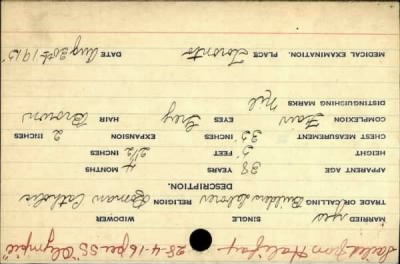 Sailed from Halifax 28-4-16 per SS "Olympic"
MARRIED yes SINGLE WIDOWER
TRADE OR CALLING Builders Laborer RELIGION Roman Catholic
DESCRIPTION.
APPARENT AGE 38 YEARS MONTHS
HEIGHT 5' FEET 2½ INCHES
CHEST MEASUREMENT 35 INCHES EXPANSION 2 INCHES
COMPLEXION Fair EYES Grey HAIR Brown
DISTINGUISHING MARKS Nil
MEDICAL EXAMINATION. PLACE Toronto DATE Aug 30th 1915